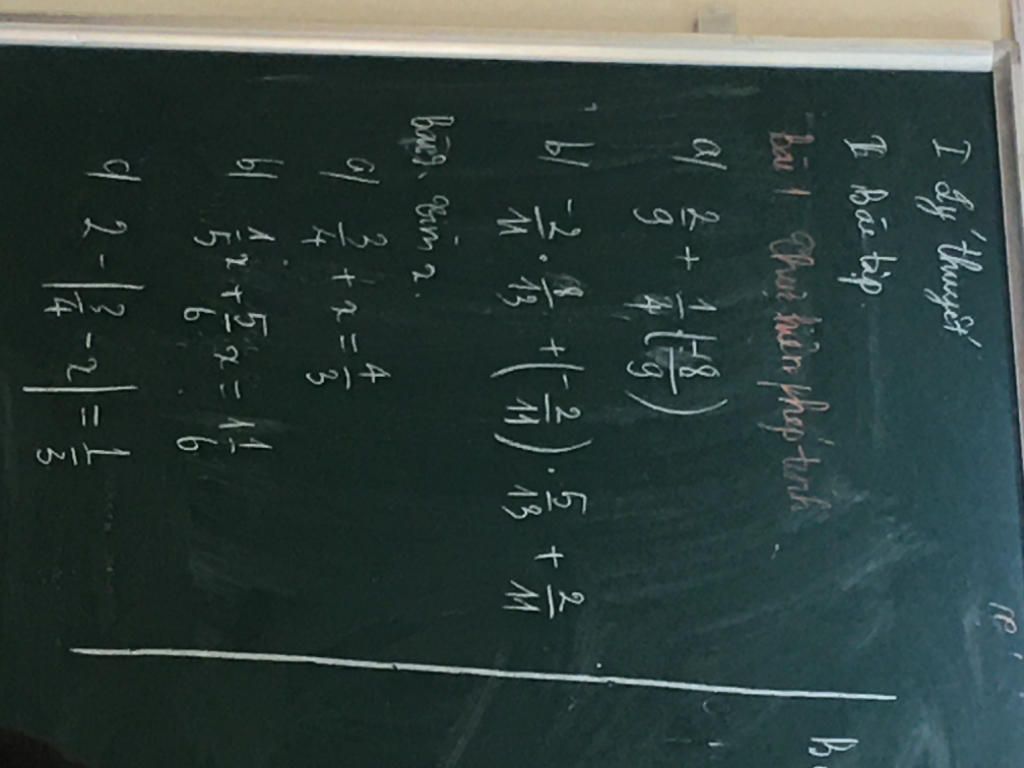 I Lý thuyết
II Bài tập
Bài 1 Thực hiện phép tính
a/ 2/9 + 1/4 (-8/9)
b/ -2/11 . 8/13 + (-2/11) . 5/13 + 2/11
Bài 2. Tìm x.
a/ 3/4 + x = 4/3
b/ 1/5 x + 5/6 x = 11/6
c/ 2 - |3/4 - x| = 1/3